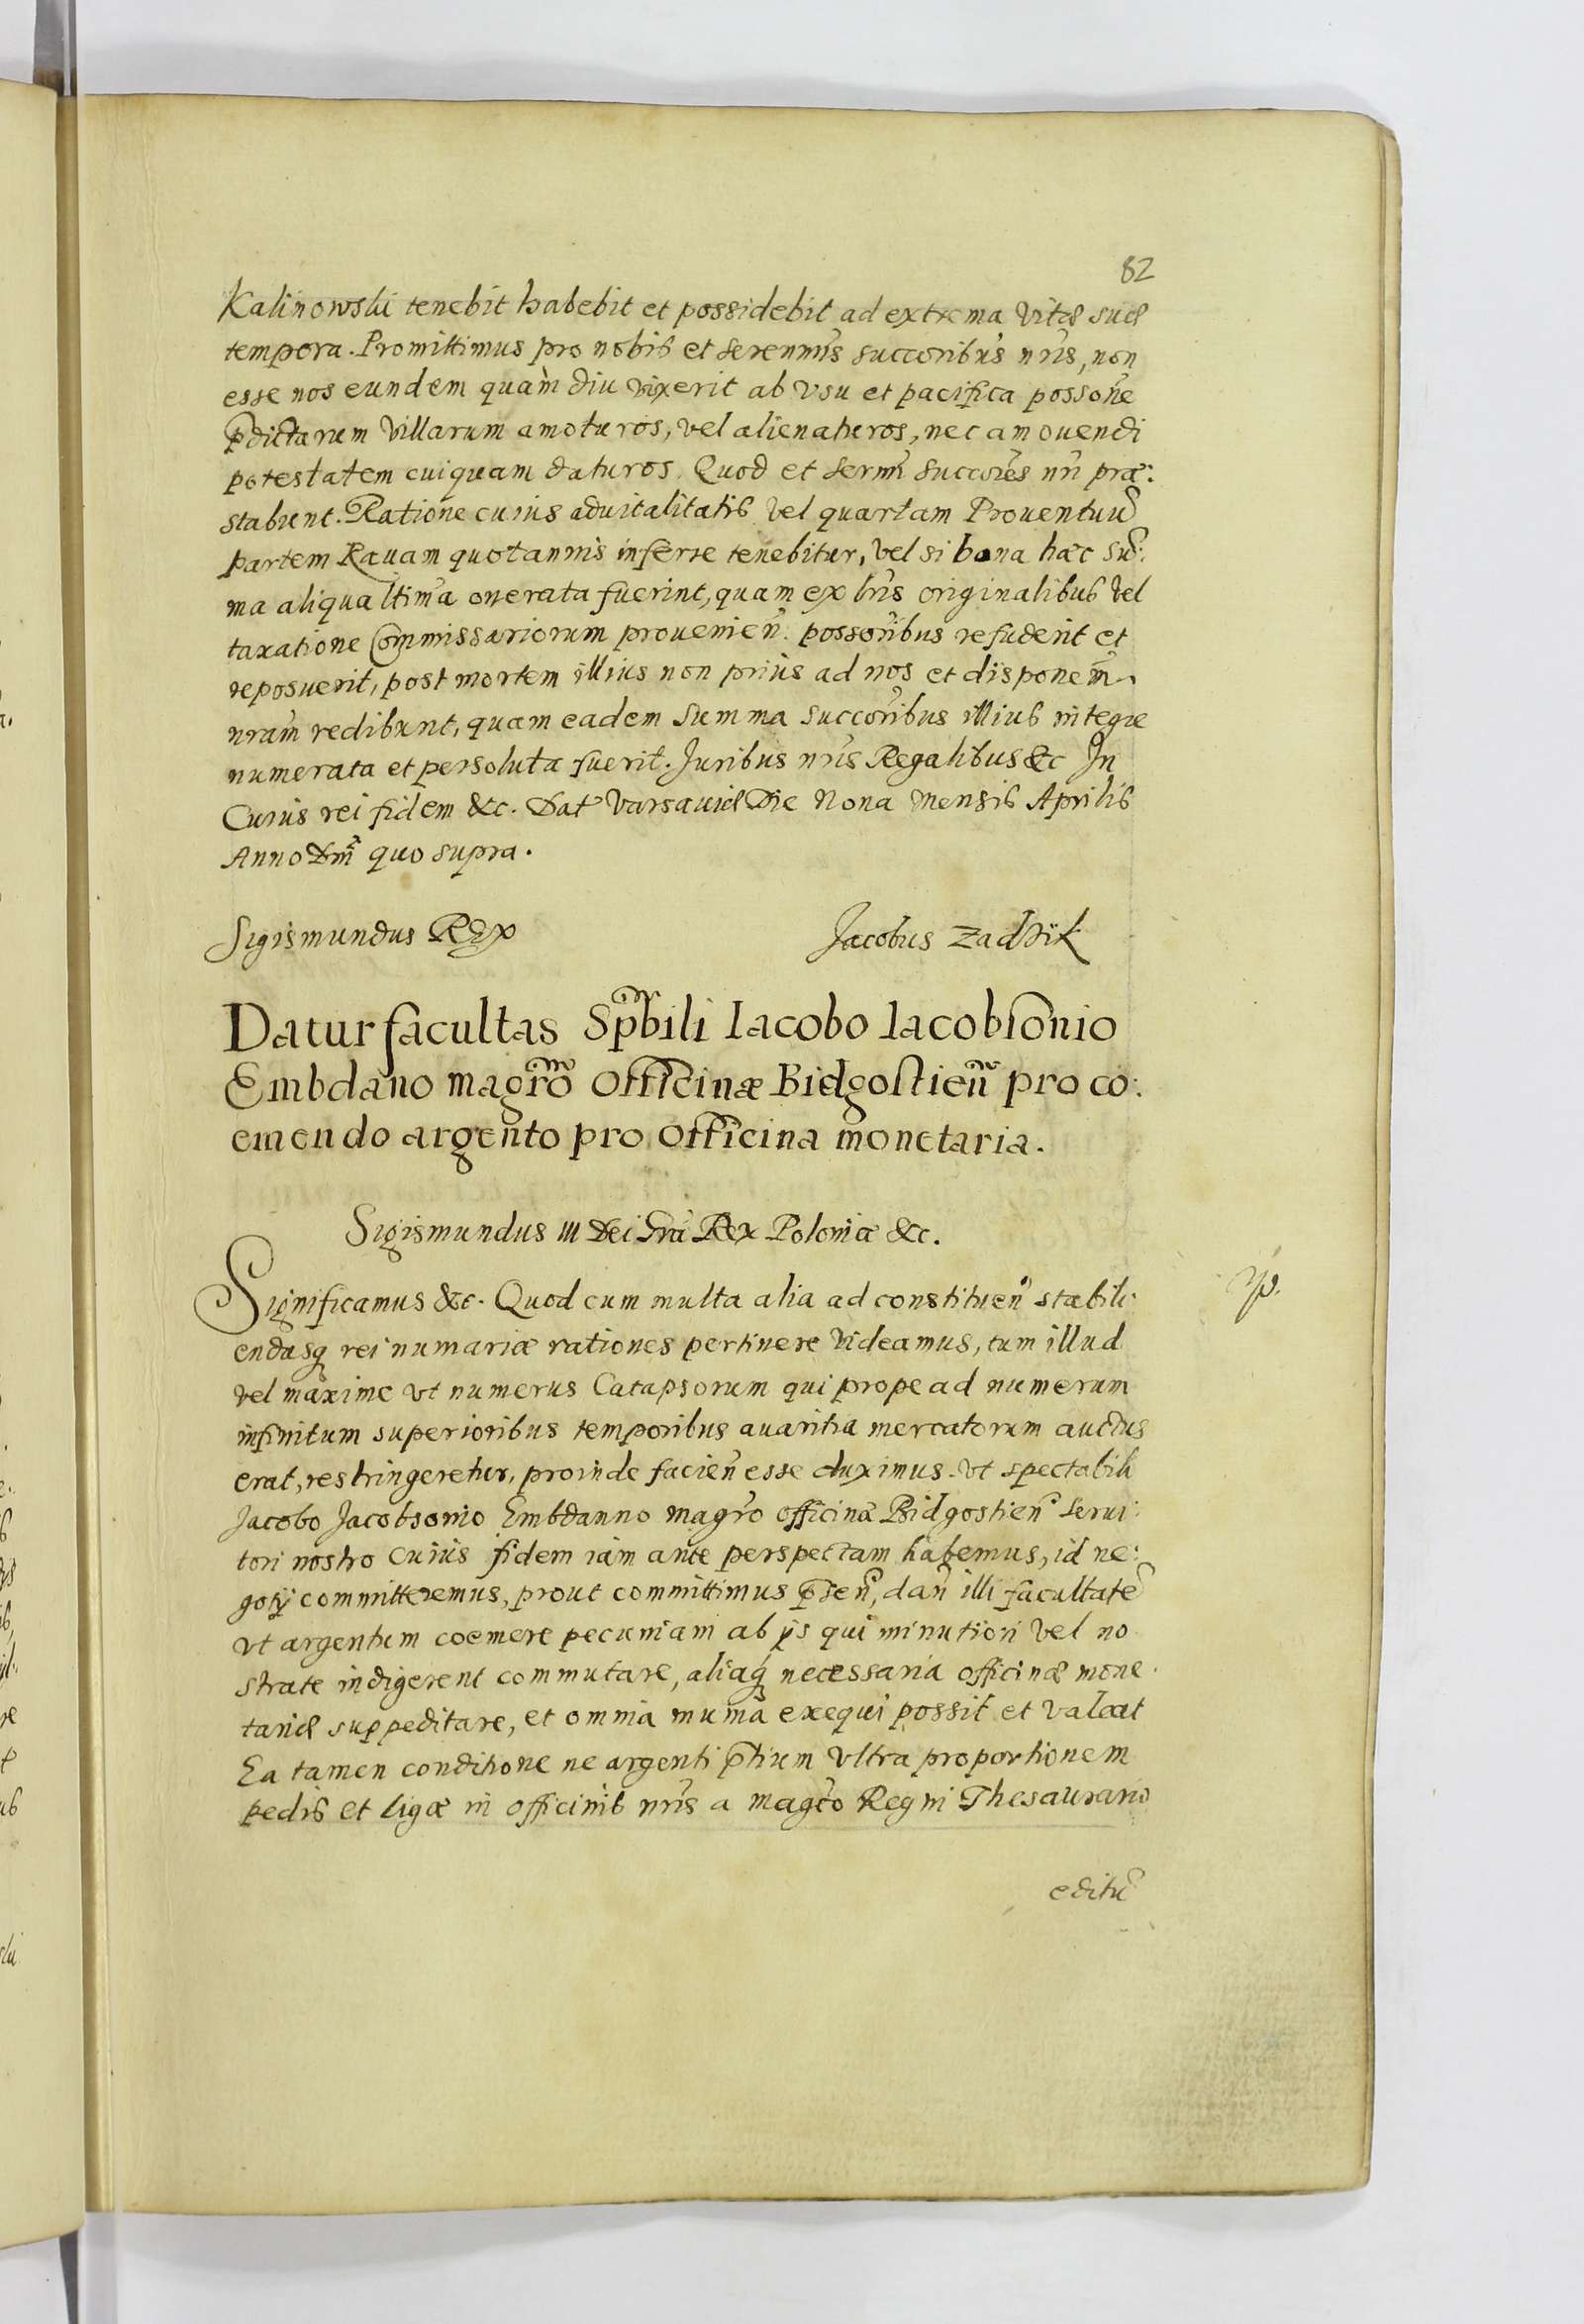 82
Kalinowski tenebit habebit et possidebit ad extrema vitæ suæ
tempora. Promittimus pro nobis et serenmis succoribus nris, non
esse nos eundem quam diu vixerit ab usu et pacifica possone
pdictarum villarum amoturos, vel alienaturos, nec amovendi
potestatem cuiquam daturos. Quod et sermi succores nri præ:
stabunt. Ratione cuius advitalitatis vel quartam Proventuu
partem Ravam quotannis inferre tenebitur, vel si bona hæc su:
ma aliqua ltima onerata fuerint, quam ex lris originalibus vel
taxatione Commissariorum provenien. possoribus refuderit et
reposuerit, post mortem illius non prius ad nos et disponem
nram redibunt, quam eadem summa succoribus illius integre
numerata et persoluta fuerit. Juribus nris Regalibus &c In
Cuius rei fidem &c. Dat Varsaviæ Die Nona Mensis Aprilis
Anno Dni quo supra.
Sigismundus Rex Jacobus Zadzik
Datur facultas Spbili Iacobo Iacobsonio
Embdano magro Officinæ Bidgostien pro co:
emendo argento pro Officina monetaria.
Sigismundus III Dei Gra Rex Poloniæ &c.
Significamus &c. Quod cum multa alia ad constituen stabili:
endasq rei numariæ rationes pertinere videamus, tum illud
vel maxime vt numerus Catapsorum qui prope ad numerum
infinitum superioribus temporibus avaritia mercatorum auctus
erat, restringeretur, proinde facien esse duximus. vt spectabili
Jacobo Jacobsonio Embdanno magro officinæ Bidgostien servi:
tori nostro cuius fidem iam ante perspectam habemus, id ne:
gotij committeremus, prout committimus psen, dan illi facultate
vt argentum coemere pecuniam ab ijs qui minutiori vel no
strate indigerent commutare, aliaq necessaria officinæ mone
tariæ suppeditare, et omnia munia exequi possit et valeat
Ea tamen conditione ne argenti ptium vltra proportionem
pedis et ligæ in officinis nris a magco Regni Thesaurario
editu